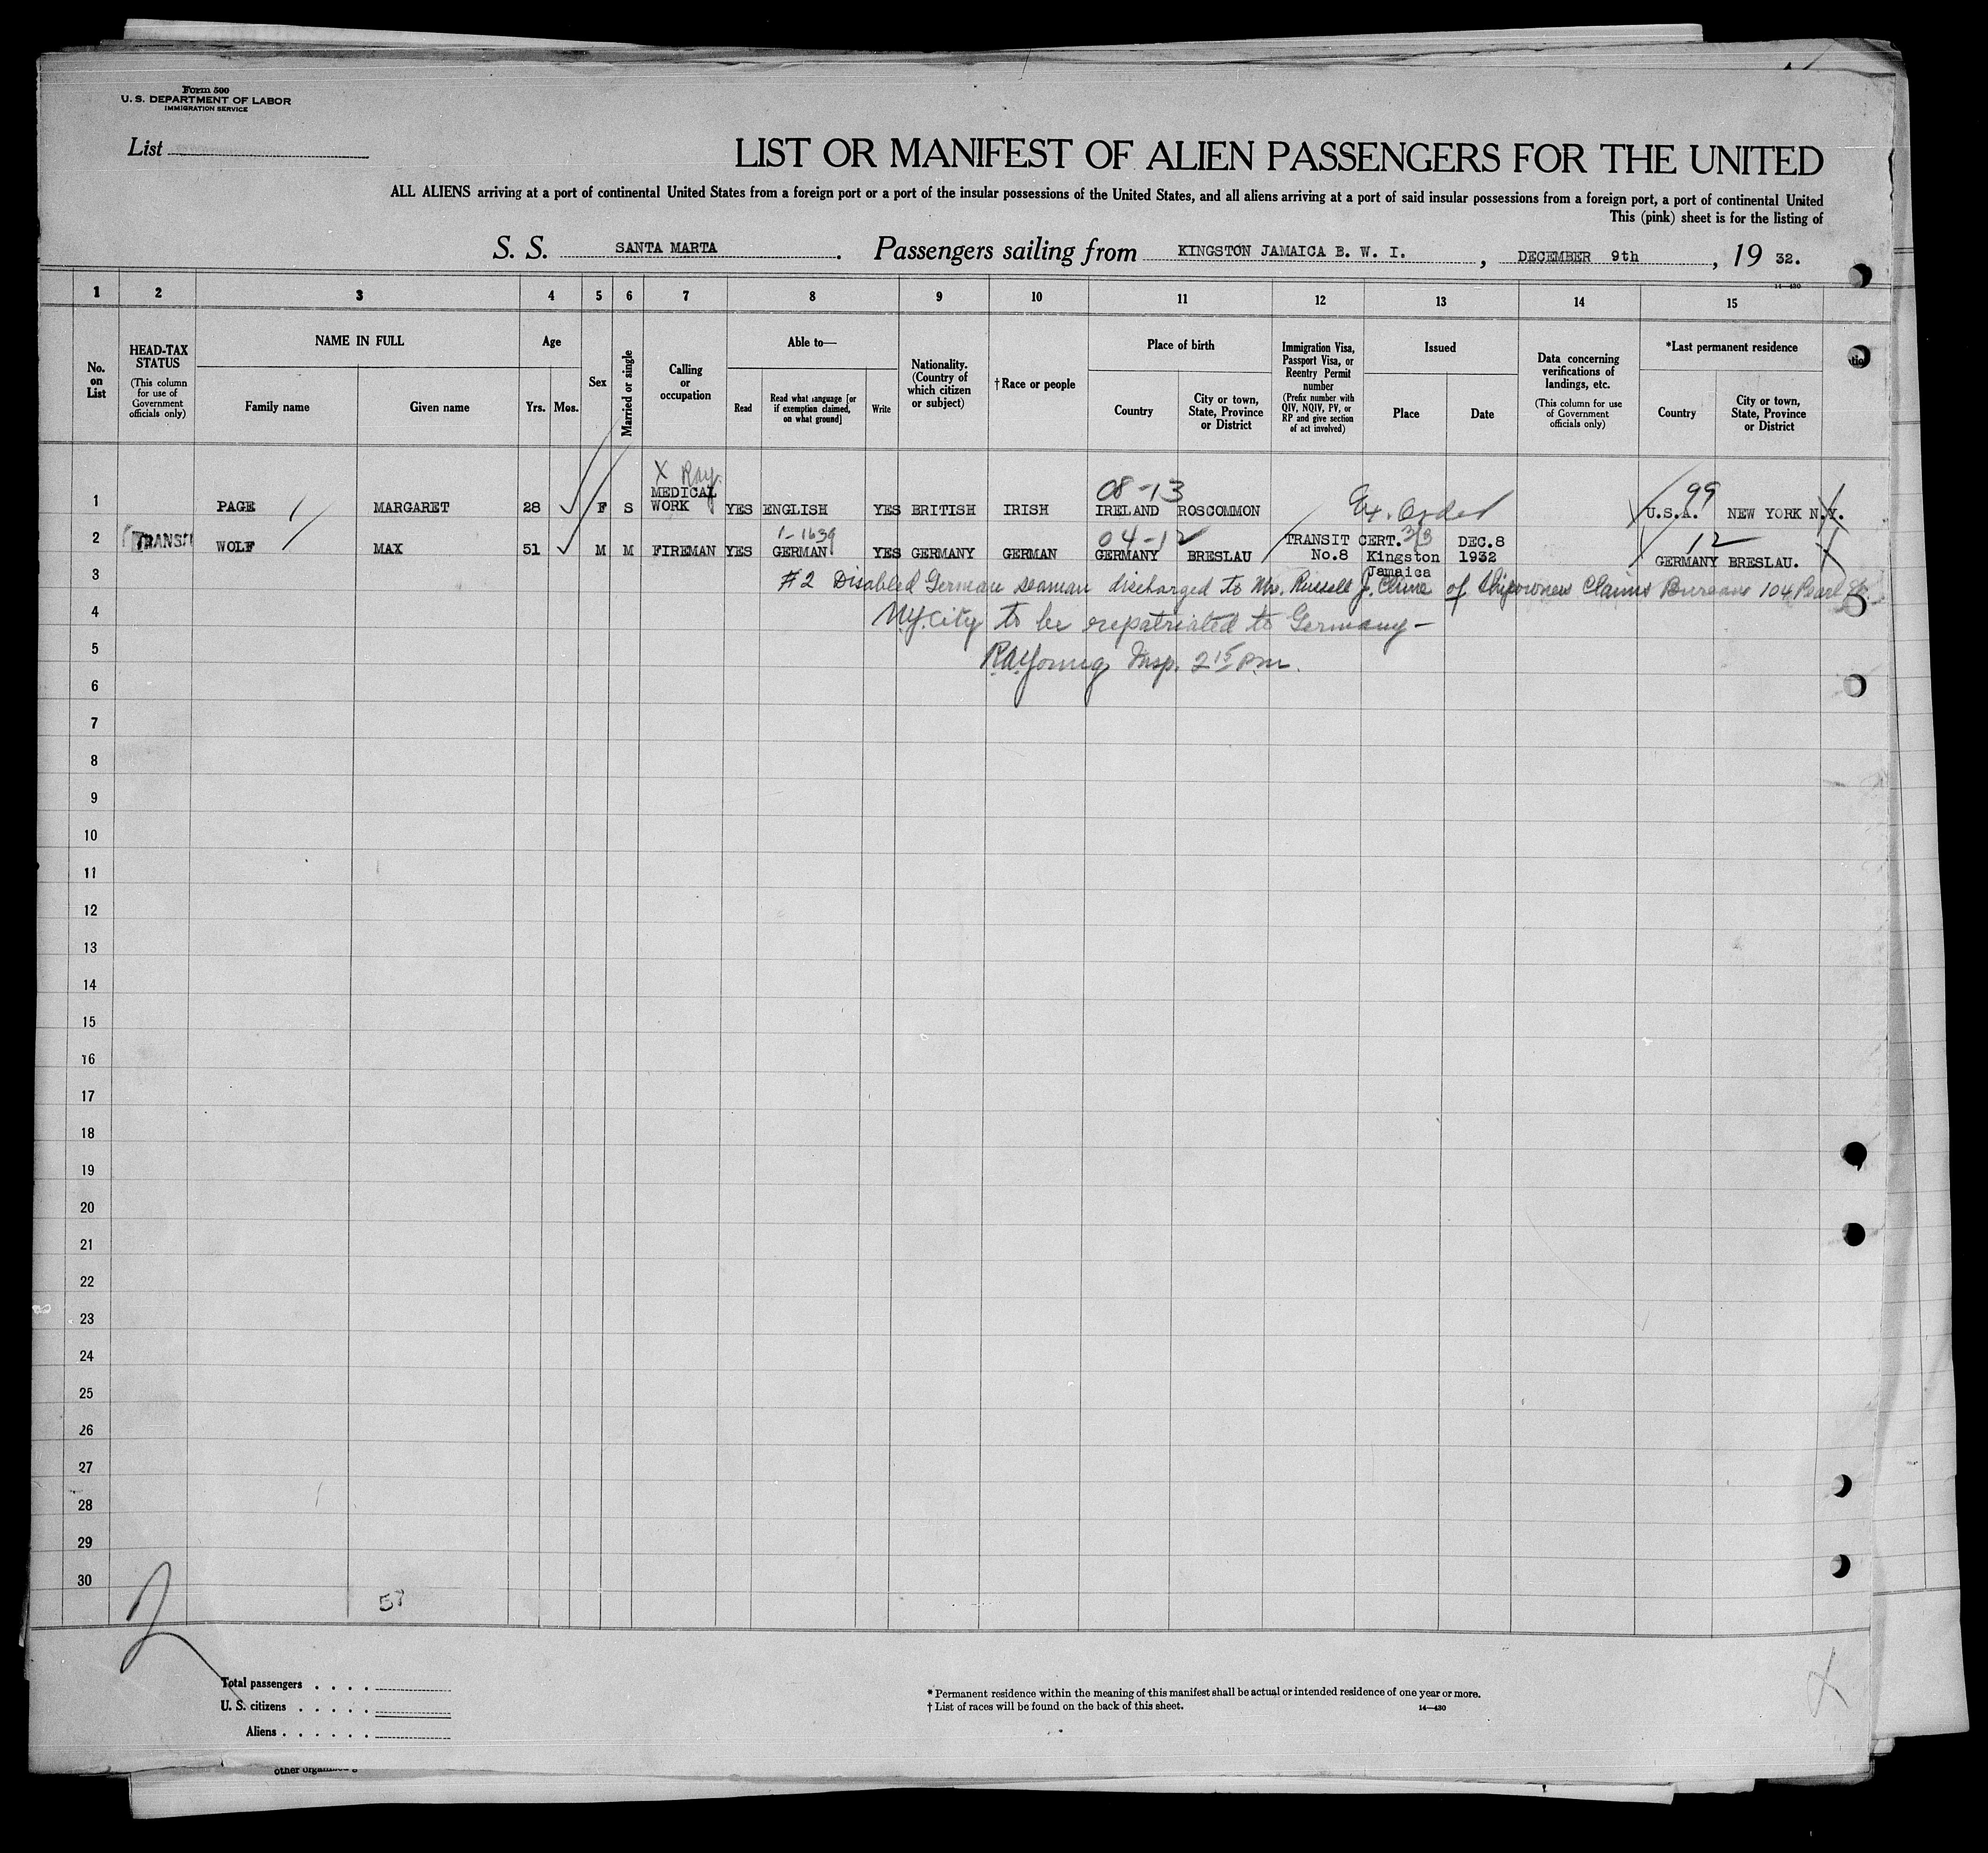 Form 500
U. S. DEPARTMENT OF LABOR
IMMIGRATION SERVICE
List
LIST OR MANIFEST OF ALIEN PASSENGERS FOR THE UNITED
ALL ALIENS arriving at a port of continental United States from a foreign port or a port of the insular possessions of the United States, and all aliens arriving at a port of said insular possessions from a foreign port, a port of continental United
This (pink) sheet is for the listing of
S. S. SANTA MARTA . Passengers sailing from KINGSTON JAMAICA B. W. I. , DECEMBER 9th , 19 32.
14—430
1 2 3 4 5 6 7 8 9 10 11 12 13 14 15
No. on List
HEAD-TAX STATUS (This column for use of Government officials only)
NAME IN FULL
Family name Given name
Age
Yrs. Mos.
Sex
Married or single
Calling or occupation
Able to—
Read Read what language [or if exemption claimed, on what ground] Write
Nationality. (Country of which citizen or subject)
†Race or people
Place of birth
Country City or town, State, Province or District
Immigration Visa, Passport Visa, or Reentry Permit number (Prefix number with QIV, NQIV, PV, or RP and give section of act involved)
Issued
Place Date
Data concerning verifications of landings, etc. (This column for use of Government officials only)
*Last permanent residence
Country City or town, State, Province or District
X Ray 08-13 99
1 PAGE MARGARET 28 F S MEDICAL WORK YES ENGLISH YES BRITISH IRISH IRELAND ROSCOMMON Ex. Order U.S.A. NEW YORK N.Y.
1-1639 04-12 3/3 12
2 TRANSIT WOLF MAX 51 M M FIREMAN YES GERMAN YES GERMANY GERMAN GERMANY BRESLAU TRANSIT CERT. No.8 Kingston Jamaica DEC.8 1932 GERMANY BRESLAU.
3 #2 Disabled German seaman discharged to Mr. Russell J. Cline of Shipowners Claims Bureau 104 Pearl St.
4 N.Y. City to be repatriated to Germany—
5 R.A. Young Insp. 2 15 P.M.
6
7
8
9
10
11
12
13
14
15
16
17
18
19
20
21
22
23
24
25
26
27
28
29
30
57
2
Total passengers . . . .
U. S. citizens . . . . .
Aliens . . . . . .
* Permanent residence within the meaning of this manifest shall be actual or intended residence of one year or more.
† List of races will be found on the back of this sheet.
14—430